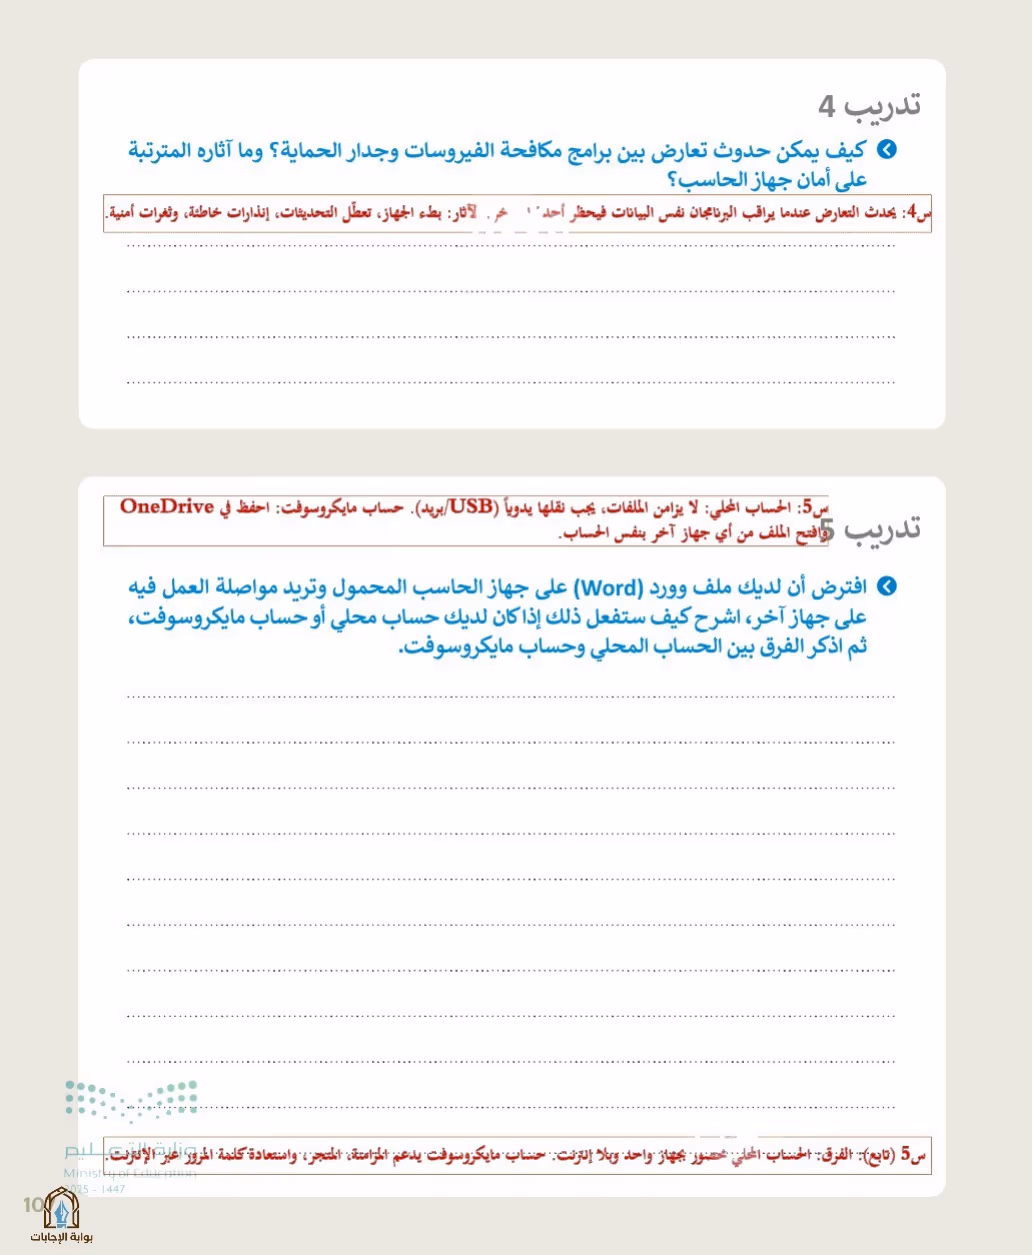 تدريب 4
كيف يمكن حدوث تعارض بين برامج مكافحة الفيروسات وجدار الحماية؟ وما آثاره المترتبة
على أمان جهاز الحاسب؟
س4: يحدث التعارض عندما يراقب البرنامجان نفس البيانات فيحظر الآثار: بطء الجهاز، تعطّل التحديثات، إنذارات خاطئة، وثغرات أمنية.
س5: الحساب المحلي: لا يزامن الملفات، يجب نقلها يدوياً (USB/بريد). حساب مايكروسوفت: احفظ في OneDrive
وافتح الملف من أي جهاز آخر بنفس الحساب.
تدريب 5
افترض أن لديك ملف وورد (Word) على جهاز الحاسب المحمول وتريد مواصلة العمل فيه
على جهاز آخر، اشرح كيف ستفعل ذلك إذا كان لديك حساب محلي أو حساب مايكروسوفت،
ثم اذكر الفرق بين الحساب المحلي وحساب مايكروسوفت.
س5 (تابع): الفرق: الحساب المحلي محصور بجهاز واحد وبلا إنترنت. حساب مايكروسوفت يدعم المزامنة، المتجر، واستعادة كلمة المرور عبر الإنترنت.
وزارة التعليم
Ministry of Education
2025 - 1447
بوابة الإجابات